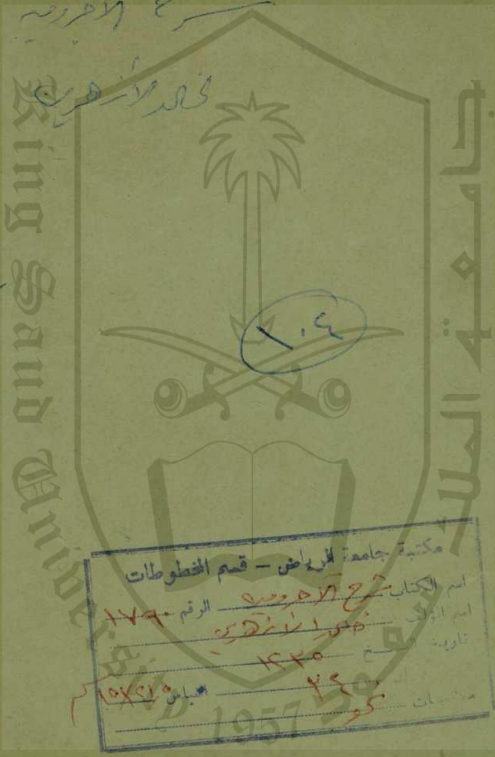 شرح الاجروميه
خالد الازهري
١٠٤
King Saud University
جامعة الملك
1957
مكتبة جامعة الرياض – قسم المخطوطات
اسم الكتاب شرح الاجروميه الرقم ١٧٩٠
اسم المؤلف الازهري
تاريخ النسخ ١٢٣٥
٣٤
نحو